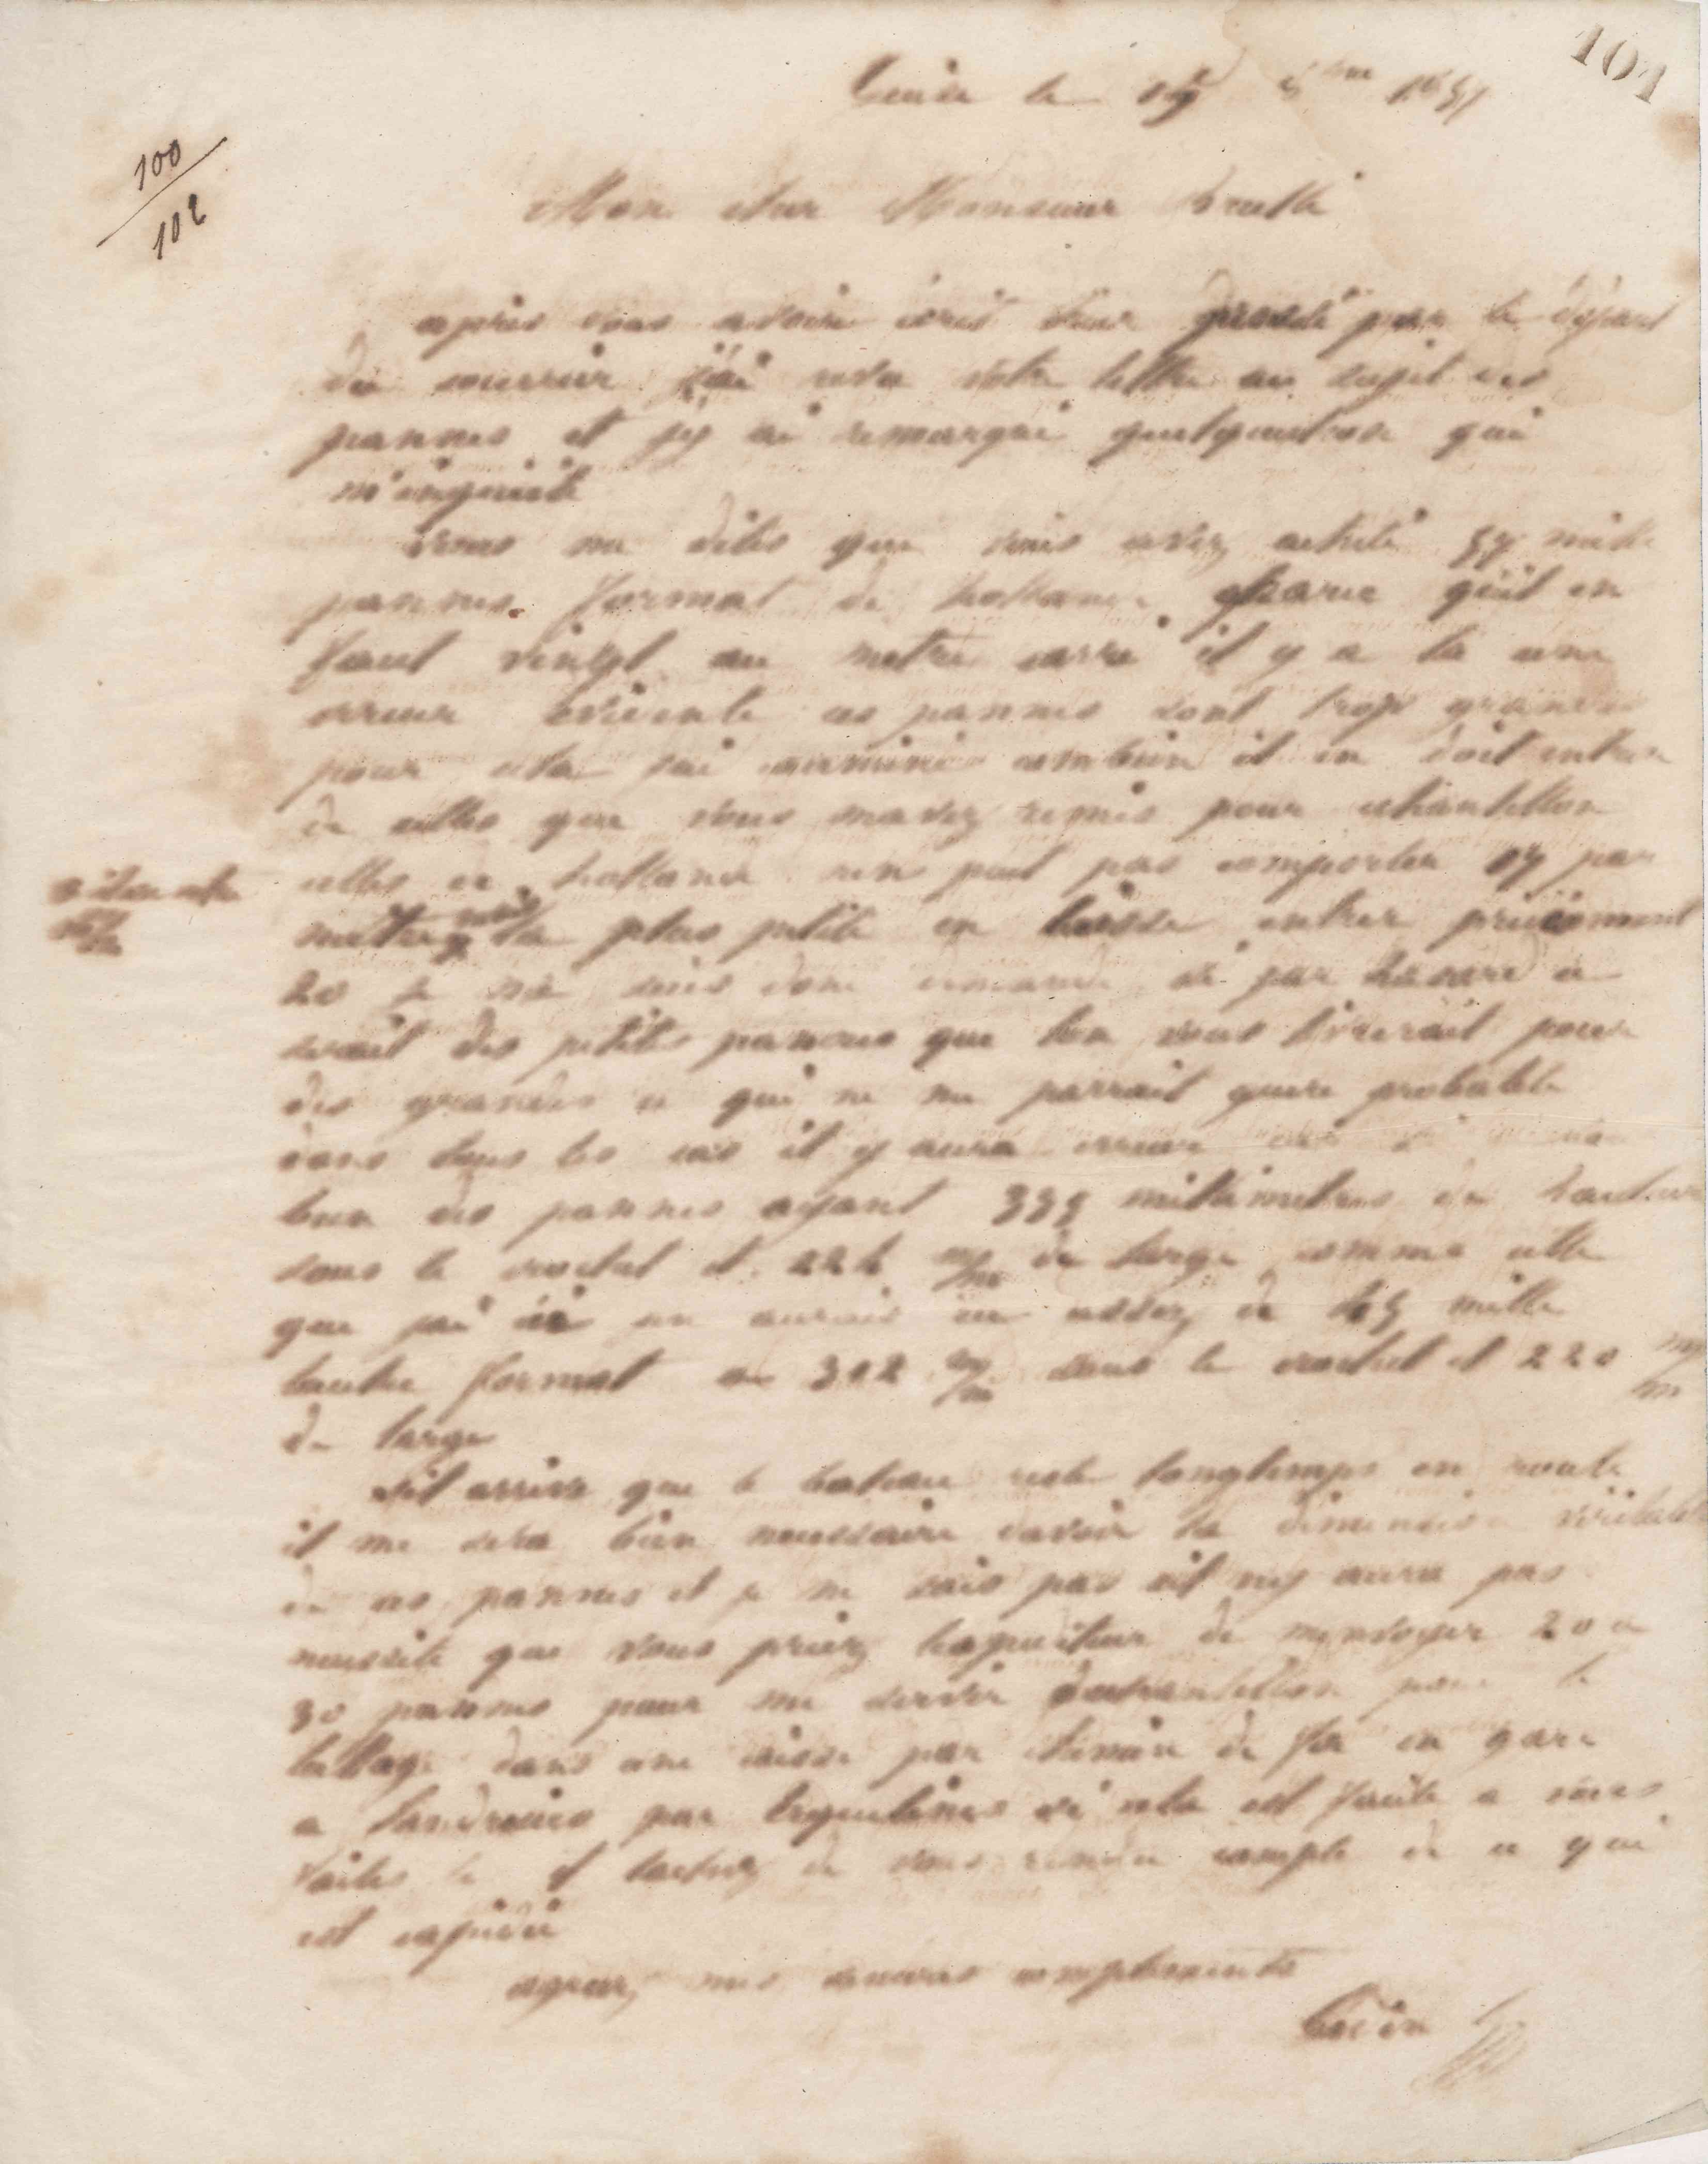 101
Guise le 19 8bre 1857
100
102
Mon cher Monsieur
apres vous avoir écrit hier pressé par le départ
du courrier j'ai revu votre lettre au sujet des
pannes et j'y ai remarqué quelquechose qui
m'inquiète
vous me dites que vous avez acheté 57 mille
pannes format de hollande qu'il en
faut vingt au metre carré il y a la une
erreur evidente ces pannes sont trop grandes
pour cela j'ai examiné combien il en doit entrer
de celles que vous mavez remis pour echantillon
celles de hollande nen peut pas comporter 17 par
metre la plus petite en laisse entrer précisement
20 je me suis donc demandé si par hasard ce
serait des petites pannes que lon vous livrerait pour
des grandes ce qui ne me parrait guere probable
dans tous les cas il y aura erreur car si
bien des pannes ayant 335 millimetres de hauteur
sous le crochet et 224 m/m de large comme celle
que j'ai ici en aurais eu assez de 45 mille
lautre format a 312 m/m sous le crochet et 220 m/m
de large
sil arrive que le bateau reste longtemps en route
il me sera bien necessaire davoir la dimension véritable
de ces pannes et je ne sais pas sil ny aura pas
necessité que vous priez lexpediteur de menvoyer 20 a
30 pannes pour me servir dechantillon pour le
lattage dans une caisse par chemin de fer en gare
a landrecies par si cela est faite a vous
faites le et tachez de vous rendre compte de ce qui
est expédié
agreez mes sinceres compliments
Godin